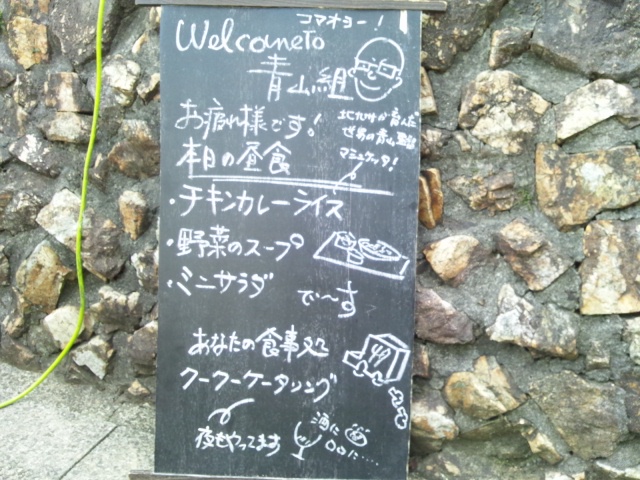 コマオカー!
WelcomeTo
青山組
北九州が育んだ
世界の青山監督
お疲れ様です!
マミュケッタ!
本日の昼食
・チキンカレーライス
・野菜のスープ
・ミニサラダ
で〜す
あなたの食事処
クークーケータリング
夜もやってます
酒に
〇〇に....